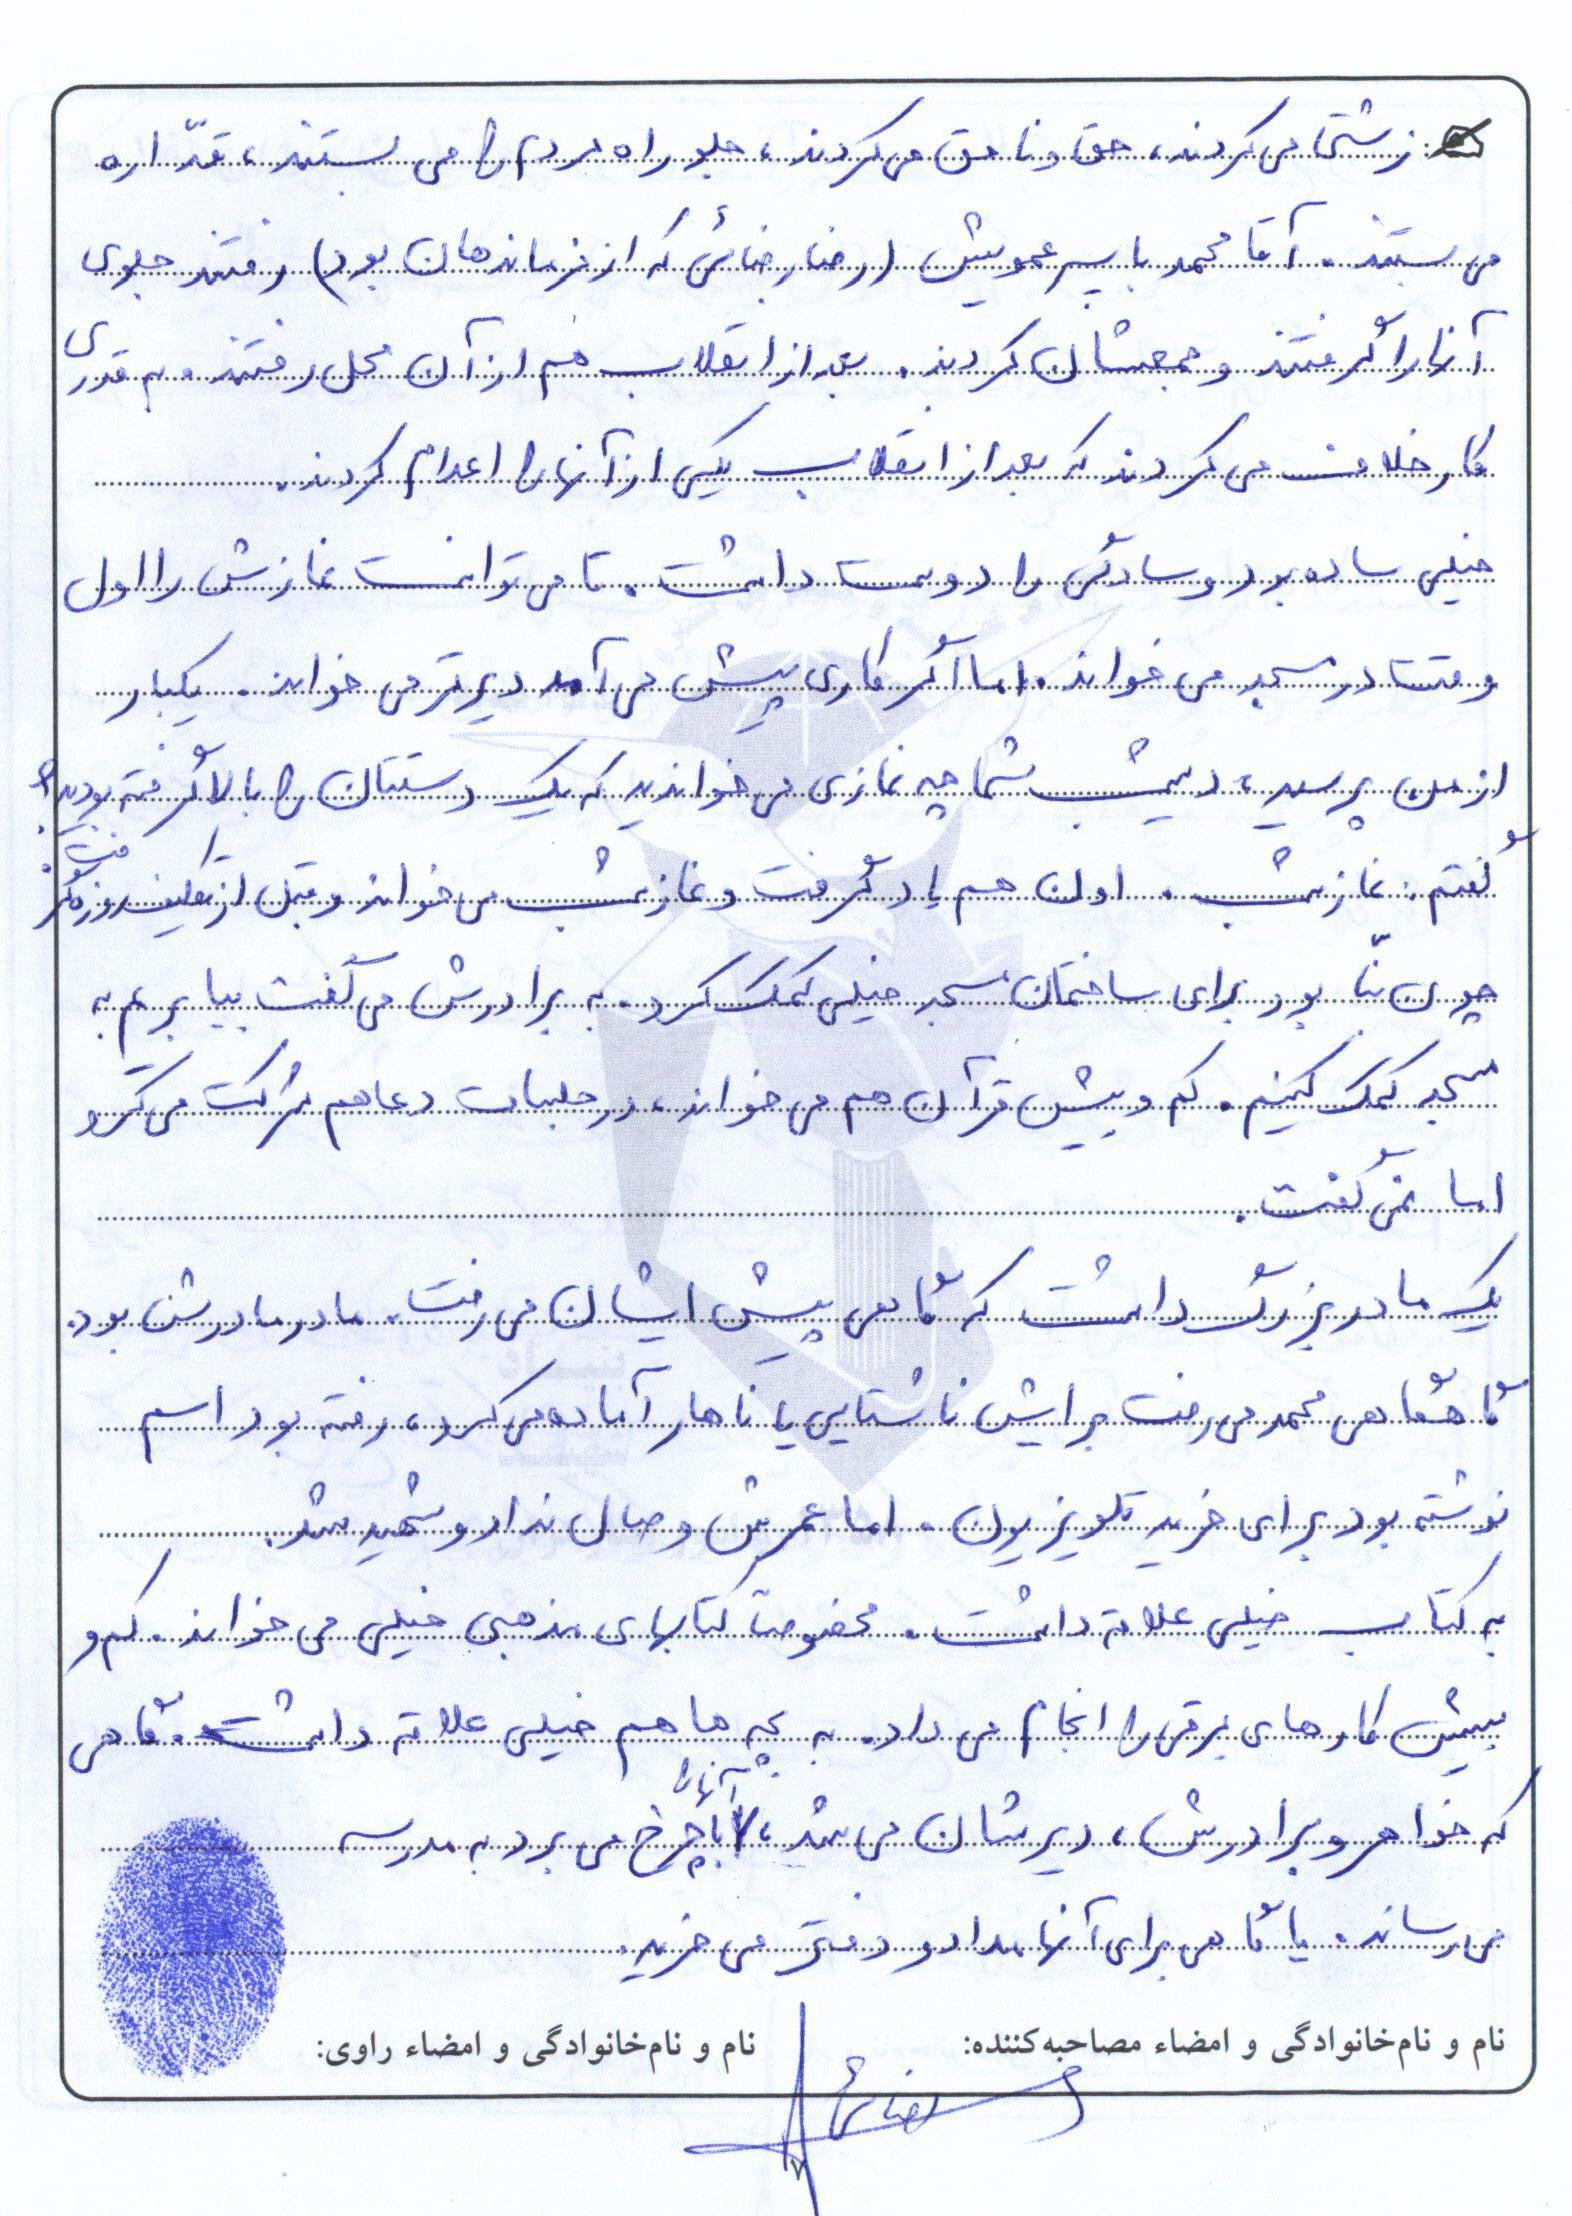 زشتی می‌کردند، حق و ناحق می‌کردند، جلو راه مردم را می بستند، قدّاره
می بستند. آقا محمد با پسر عمویش (رضا رضائی که از فرماندهان بود) رفتند جلوی
آنها را گرفتند و جمعشان کردند. بعد از انقلاب هم از آن محل رفتند. به قدری
کار خلاف می کردند که بعد از انقلاب یکی از آنها را اعدام کردند.
خیلی ساده بود و سادگی را دوست داشت. تا می توانست نمازش را اول
وقت در مسجد می خواند. اما اگر کاری پیش می آمد دیرتر می خواند. یکبار
از من پرسید، دیشب شما چه نمازی می خواندید که یک دستتان را بالا گرفته بودید؟
گفتم: نماز شب. اون هم یاد گرفت و نماز شب می خواند و قبل از تکلیف روزه می گرفت.
چون بنّا بود برای ساختمان مسجد خیلی کمک کرد. به برادرش می گفت بیا بریم به
مسجد کمک کنیم. کم و بیش قرآن هم می خواند، در جلسات دعا هم شرکت می کرد
اما نمی گفت.
یک مادربزرگ داشت که گاهی پیش ایشان می رفت. مادر مادرش بود.
گاهگاهی محمد می رفت برایش ناشتایی یا ناهار آماده می کرد، رفته بود اسم
نوشته بود برای خرید تلویزیون. اما عمرش وصال نداد و شهید شد.
به کتاب خیلی علاقه داشت. مخصوصاً کتابهای مذهبی خیلی می خواند. کم و
بیش کارهای برقی را انجام می داد. به بچه ها هم خیلی علاقه داشت. گاهی
که خواهر و برادرش، دیرشان می شد، آنها را با چرخ می برد به مدرسه
می رساند. یا گاهی برای آنها مداد و دفتر می خرید.
نام و نام‌خانوادگی و امضاء مصاحبه‌کننده: نام و نام‌خانوادگی و امضاء راوی:
۷